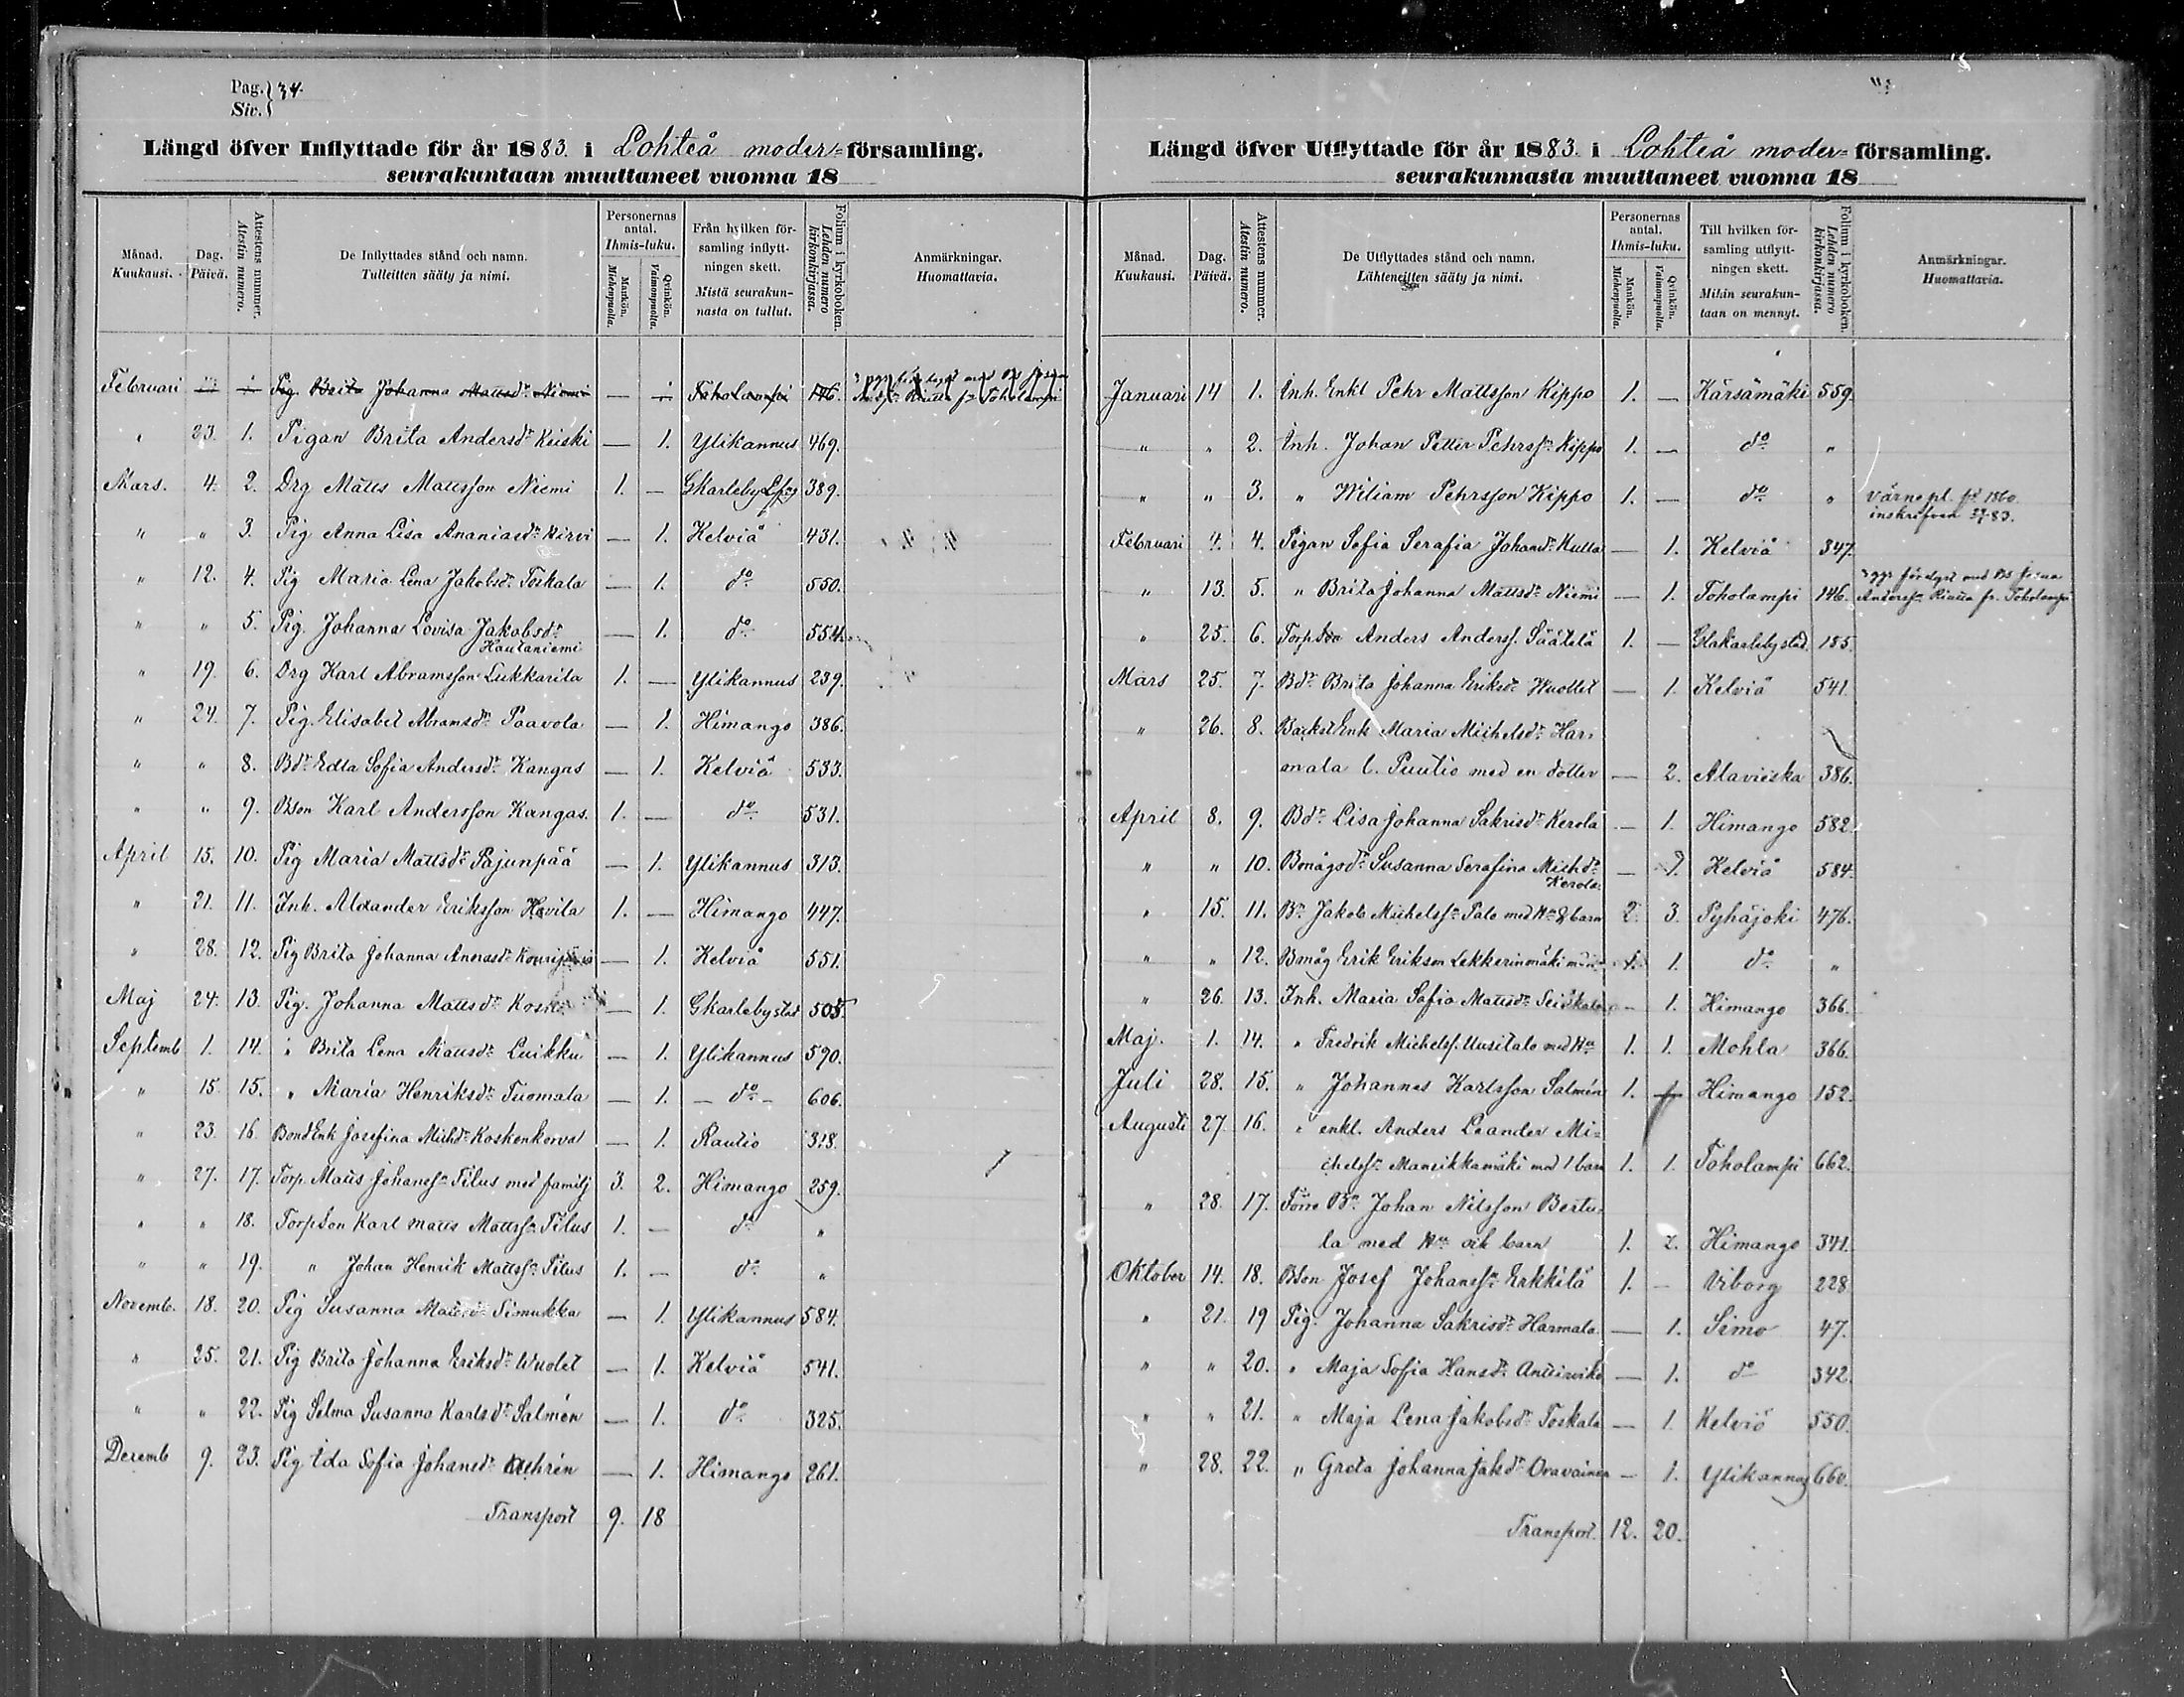 Pag. 34.
Siv.
Längd öfver Inflyttade för år 1883. i Lohteå moder-församling.
seurakuntaan muuttaneet vuonna 18
Månad. Kuukausi. Dag. Päivä. Attestens nummer. Atestin numero. De Inflyttades stånd och namn. Tulleitten sääty ja nimi. Personernas antal. Ihmis-luku. Mankön. Miehenpuolia. Qvinkön. Vaimonpuolia. Från hvilken församling inflyttningen skett. Mistä seurakunnasta on tullut. Folium i kyrkoboken. Lehden numero kirkonkirjassa. Anmärkningar. Huomattavia.
Februari Pig Brita Johanna Mattsdr Niemi — Toholampi 146.
" 23. 1. Pigan Brita Andersdr Keiski — 1. Ylikannus 469.
Mars. 4. 2. Drg Matts Mattsson Niemi 1. — Gkarleby 389.
" " 3. Pig Anna Lisa Ananiasdr Kirvi — 1. Kelviå 431.
" 12. 4. Pig Maria Lena Jakobsdr Toskala — 1. do 550.
" " 5. Pig. Johanna Lovisa Jakobsdr — 1. do 554.
Hautaniemi
" 19. 6. Drg Karl Abramsson Lukkarila 1. — Ylikannus 239.
" 24. 7. Pig. Elisabet Abramsdr Paavola — 1. Himango 386.
" " 8. Bdr Edla Sofia Andersdr Kangas — 1. Kelviå 533.
" " 9. Bson Karl Andersson Kangas. 1. — do 531.
April 15. 10. Pig Maria Mattsdr Pajunpää — 1. Ylikannus 313.
" 21. 11. Inh. Alexander Eriksson Hevila 1. — Himango 447.
" 28. 12. Pig Brita Johanna — 1. Kelviå 551.
Maj 24. 13. Pig. Johanna Mattsdr Koski — 1. Gkarleby stad 505.
Septemb 1. 14. " Brita Lena Mattsdr Luikku — 1. Ylikannus 590.
" 15. 15. " Maria Henriksdr Tuomala — 1. — do — 606.
" 23. 16. BondEnk Josefina Michdr Koskenkorva — 1. Rautio 318.
" 27. 17. Torp. Matts Johansn Tilus med familj 3. 2. Himango 259.
" " 18. Torpson Karl Matts Mattsn Tilus 1. — do "
" " 19. " Johan Henrik Mattsn Tilus 1. — do "
Novemb. 18. 20. Pig Susanna Mattsdr Simukka — 1. Ylikannus 584.
" 25. 21. Pig Brita Johanna Eriksdr Wuolet — 1. Kelviå 541.
" " 22. Pig Selma Susanna Karlsdr Salmén — 1. do 325.
Decemb 9. 23. Pig Ida Sofia Johansdr — 1. Himango 261.
Transport 9. 18
Längd öfver Utflyttade för år 1883. i Lohteå moder-församling.
seurakunnasta muuttaneet vuonna 18
Månad. Kuukausi. Dag. Päivä. Attestens nummer. Atestin numero. De Utflyttades stånd och namn. Lähteneitten sääty ja nimi. Personernas antal. Ihmis-luku. Mankön. Miehenpuolia. Qvinkön. Vaimonpuolia. Till hvilken församling utflyttningen skett. Mihin seurakuntaan on mennyt. Folium i kyrkoboken. Lehden numero kirkonkirjassa. Anmärkningar. Huomattavia.
Januari 14 1. Inh. Enkl Pehr Mattsson Kippo 1. — Kärsämäki 559.
" " 2. Inh. Johan Petter Pehrsn Kippo 1. — do "
" " 3. " Wiliam Pehrsson Kippo 1. — do " värnepl. fr 1860.
inskrifven 83.
Februari 4. 4. Pigan Sofia Serafia Johansdr Hulla — 1. Kelviå 347.
" 13. 5. " Brita Johanna Mattsdr Niemi — 1. Toholampi 146. 3 ggr förelyst med Bs Josua
Andersn Riutta fr. Toholampi
" 25. 6. Torpson Anders Anderss. Säätelä 1. — Glakarleby stad. 155.
Mars 25. 7. Bdr Brita Johanna Eriksdr Wuollet — 1. Kelviå 541.
" 26. 8. BackstEnk Maria Michelsdr Har-
mala l. Puutio med en dotter — 2. Alavieska 386.
April 8. 9. Bdr Lisa Johanna Sakrisdr Kerola — 1. Himango 582.
" " 10. Bmågsdr Susanna Serafina Michdr — 1. Kelviå 584.
Kerola.
" 15. 11. Bn Jakob Michelsn Palo med Hu & barn 2. 3. Pyhäjoki 476.
" " 12. Bmåg Erik Erikson Lekkerinmäki 1. 1. do "
" 26. 13. Inh. Maria Sofia Mattsdr — 1. Himango 366.
Maj. 1. 14. " Fredrik Michelss. Uusitalo med Hu 1. 1. Mohla 366.
Juli 28. 15. " Johannes Karlsson Salmén 1. — Himango 152.
Augusti 27. 16. " enkl. Anders Leander Mi-
chelsn Mansikkamäki med 1 barn 1. 1. Toholampi 662.
" 28. 17. Förre Bn Johan Nilsson Bertu-
la med Hu och barn 1. 2. Himango 341.
Oktober 14. 18. Bson Josef Johansn Erkkilä 1. — Viborg 228
" 21. 19 Pig. Johanna Sakrisdr Harmala — 1. Simo 47.
" " 20. " Maja Sofia Hansdr — 1. do 342.
" " 21. " Maja Lena Jakobsdr Toskala — 1. Kelviå 550.
" 28. 22. " Greta Johanna Jakdr Oravainen — 1. Ylikannus 660.
Transport. 12. 20.